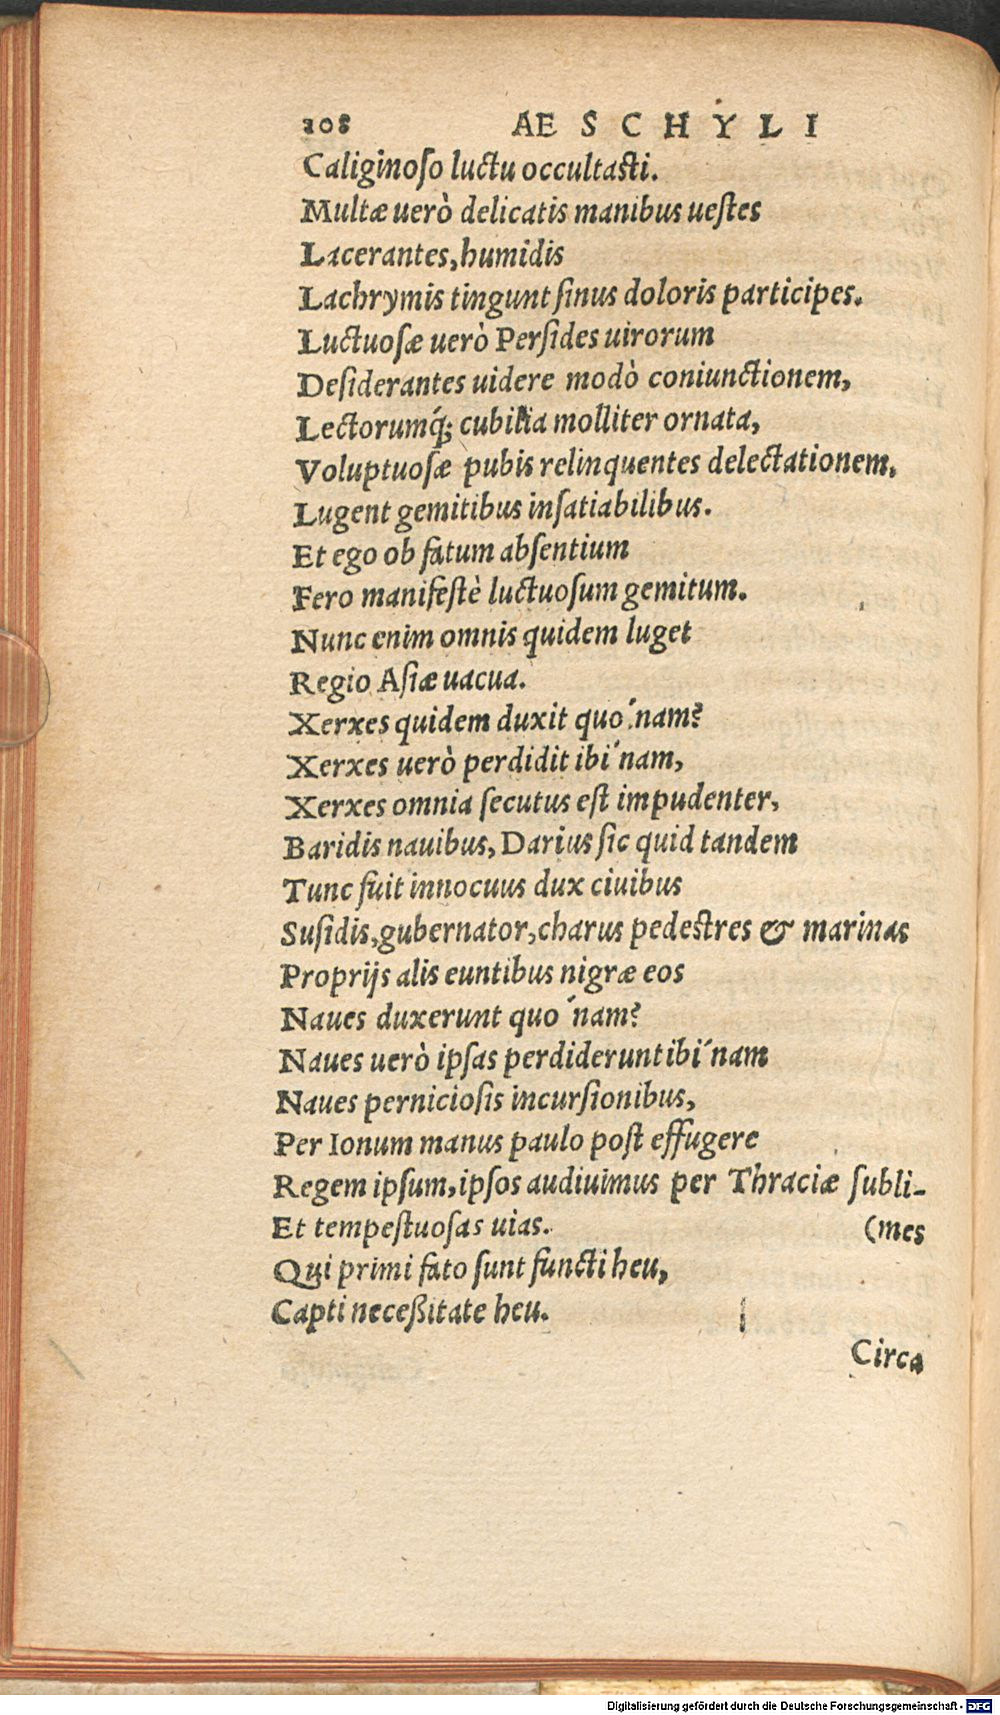 208 AESCHYLI
Caliginoso luctu occultasti.
Multæ uerò delicatis manibus uestes
Lacerantes, humidis
Lachrymis tingunt sinus doloris participes.
Luctuosæ uerò Persides uirorum
Desiderantes uidere modò coniunctionem,
Lectorumq́; cubilia molliter ornata,
Voluptuosæ pubis relinquentes delectationem,
Lugent gemitibus insatiabilibus.
Et ego ob fatum absentium
Fero manifestè luctuosum gemitum.
Nunc enim omnis quidem luget
Regio Asiæ uacua.
Xerxes quidem duxit quo´nam?
Xerxes uerò perdidit ibi´nam,
Xerxes omnia secutus est impudenter,
Baridis nauibus, Darius sic quid tandem
Tunc fuit innocuus dux ciuibus
Susidis, gubernator, charus pedestres & marinas
Proprijs alis euntibus nigræ eos
Naues duxerunt quo´nam?
Naues uerò ipsas perdiderunt ibi´nam
Naues perniciosis incursionibus,
Per Ionum manus paulo post effugere
Regem ipsum, ipsos audiuimus per Thraciæ subli-
Et tempestuosas uias. (mes
Qui primi fato sunt functi heu,
Capti neceßitate heu.
Circa
Digitalisierung gefördert durch die Deutsche Forschungsgemeinschaft - DFG